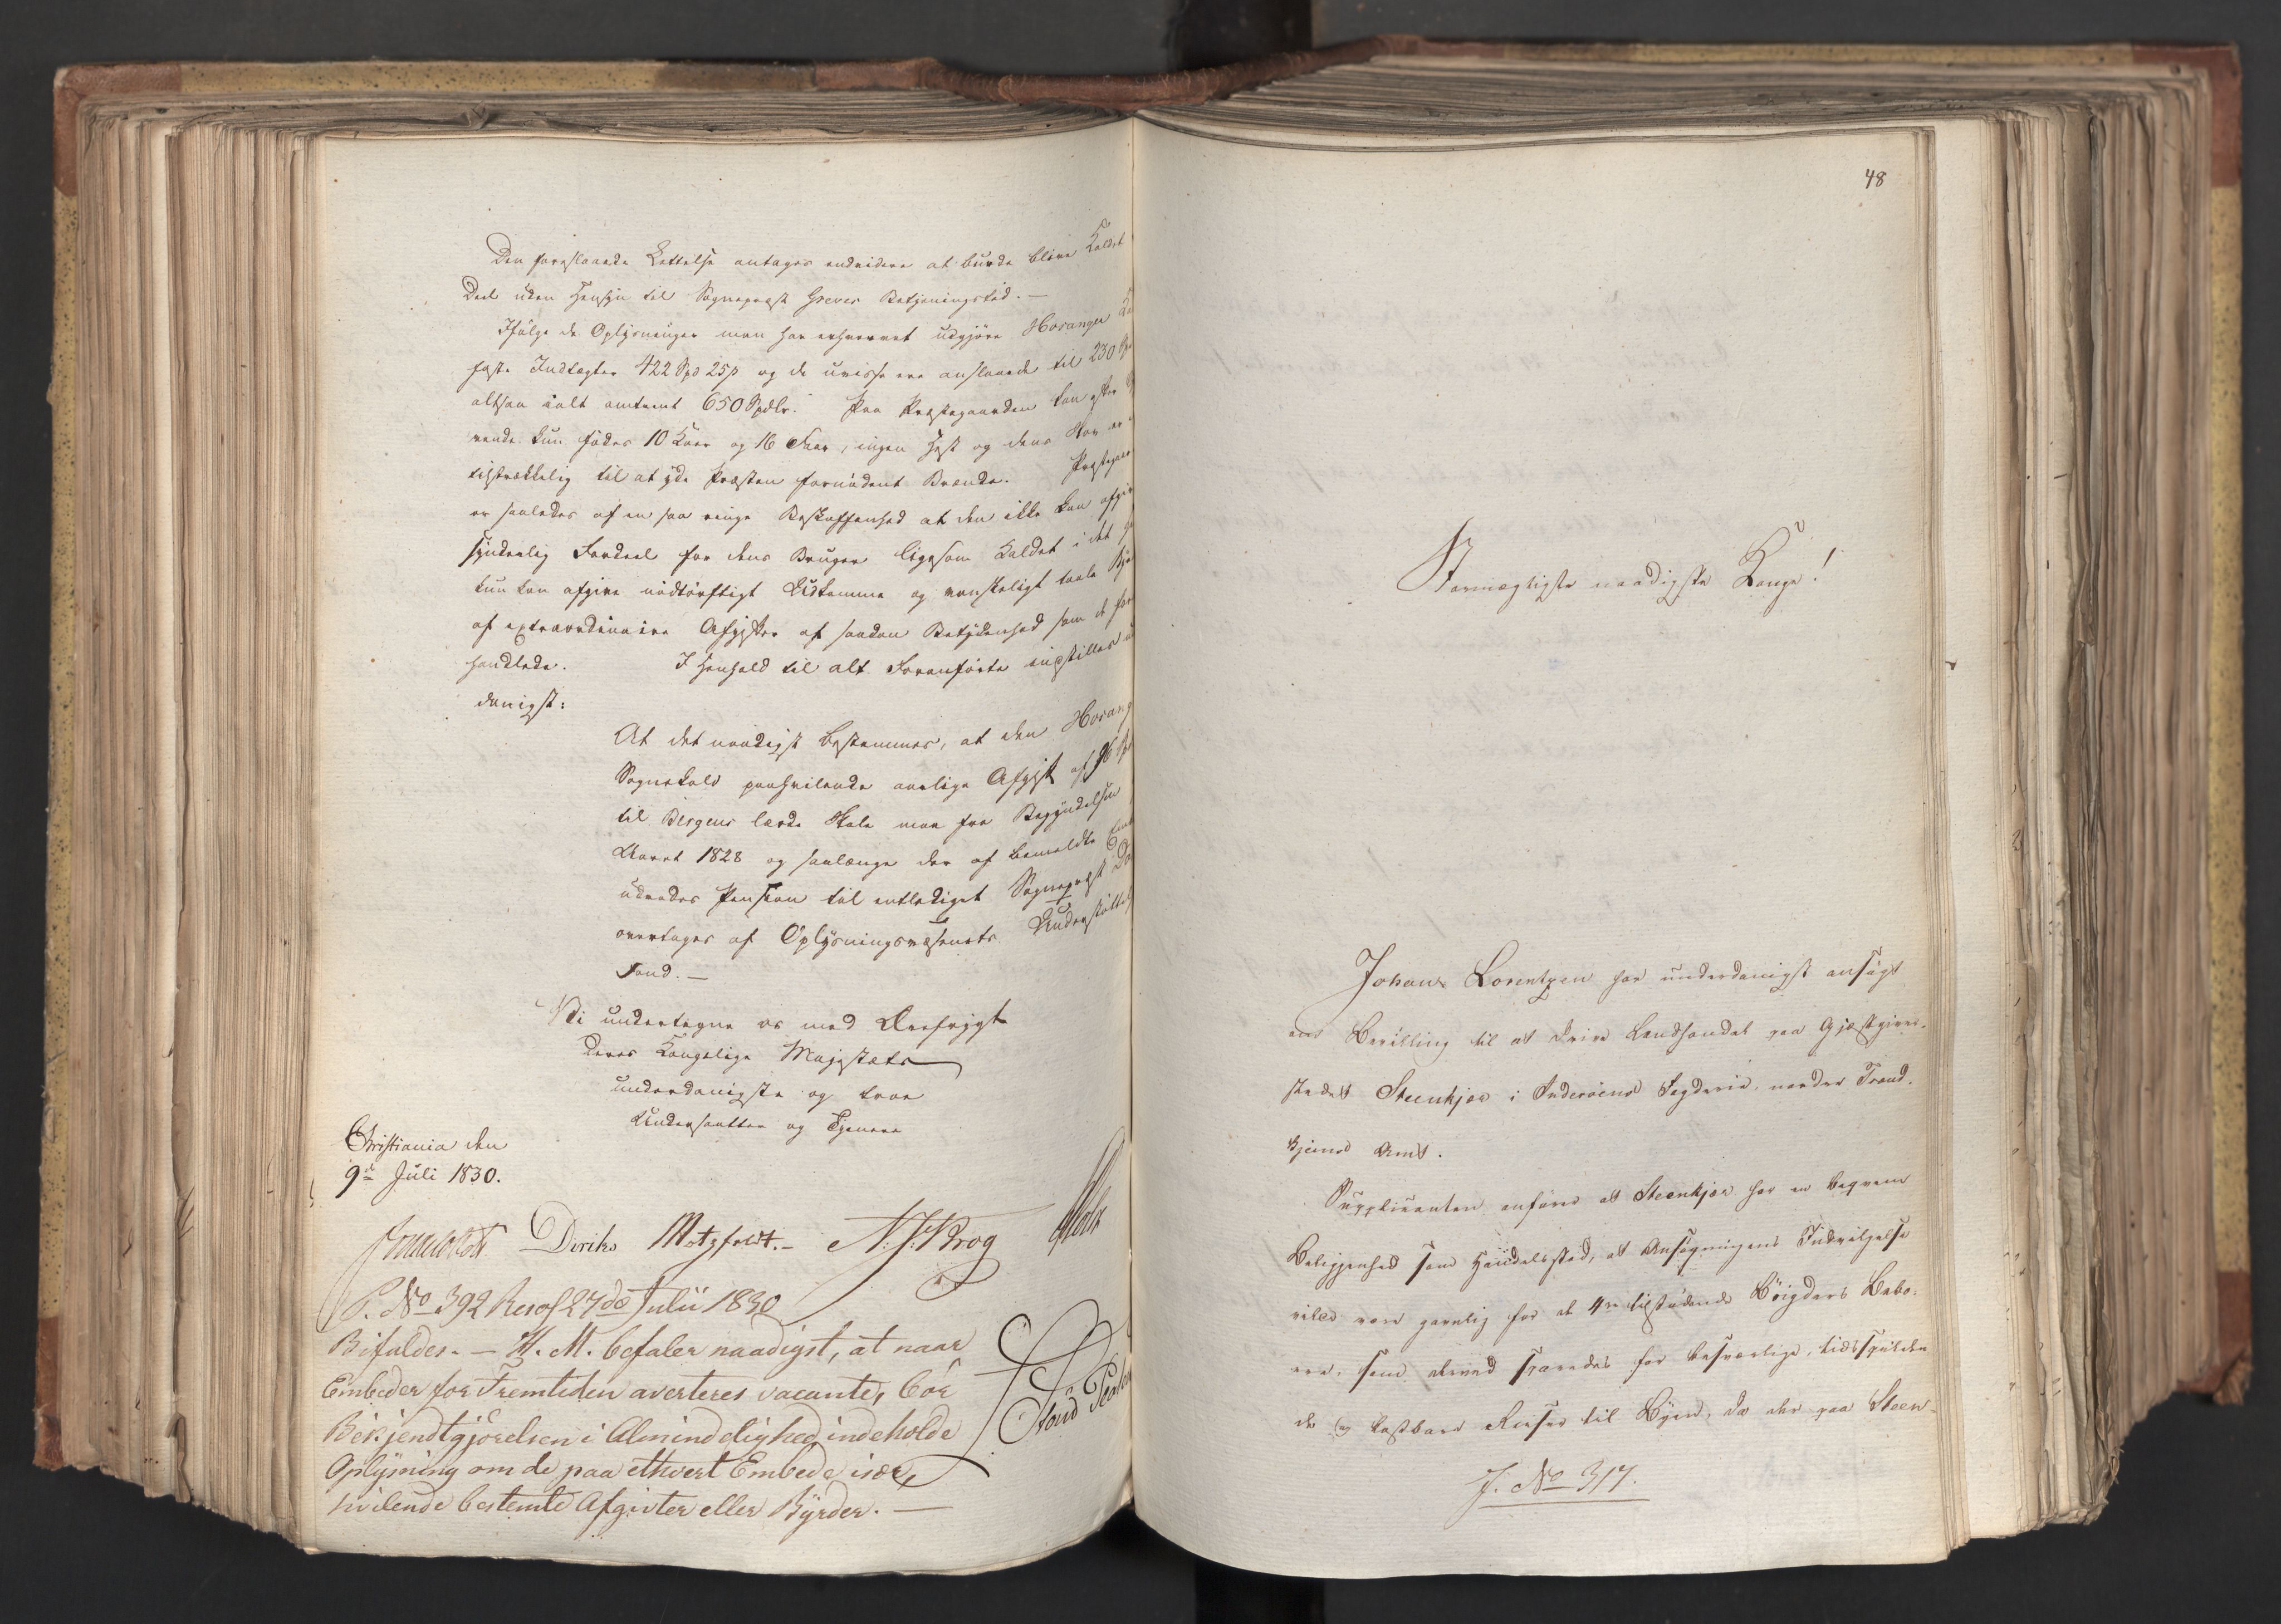 Den foreslaaede Lettelse antages endvidere at burde blive Kaldet
Deel uden Hensyn til Sognepræst Greves Betjeningstid. —
Ifølge de Oplysninger man har erhvervet udgjøre Hosanger
faste Indtægter 422 Spd 25 s og de uvisse ere anslaaede til 230
altsaa ialt omtrent 650 Spdlr. Paa Præstegaarden kan efter
rende kun fødes 10 Køer og 16 Faar, ingen Hest og dens Skov er
tilstrækkelig til at yde Præsten fornødent Brænde. Præstegaar
er saaledes af en saa ringe Beskaffenhed at den ikke kan afgive
synderlig Fordeel for dens Bruger ligesom Kaldet i det
kun kan afgive nødtørftigt Udkomme og vanskeligt taale
af extraordinaire Afgifter af saadan Betydenhed som de for
handlede. I Henhold til alt Foranførte indstilles
danigst:
At det naadigst bestemmes, at den Hosang
Sognekald paahvilende aarlige Afgift af 96
til Bergens lærde Skole maa fra Begyndelsen
Aaret 1828 og saalænge der af bemeldte
udredes Pension til entlediget Sognepræst
overtages af Oplysningsvæsenets Understøttel
Fond. —
Vi undertegne os med Ærefrygt
Deres Kongelige Majestæts
underdanigste og troe
Undersaatter og Tjenere
Christiania den
9de Juli 1830.
Diriks Motzfeldt. — N. J. Krog Holst
P. No 392 Resol 27de Julii 1830
Bifaldes. — H. M. befaler naadigst, at naar
Embeder for Fremtiden averteres vacante, bør
Bekjendtgjørelsen i Almindelighed indeholde
Oplysning om de paa ethvert Embede især
hvilende bestemte Afgivter eller Byrder. —
48
Stormægtigste naadigste Konge!
Johan Lorentzen har underdanigst ansøgt
om Bevilling til at drive Landhandel paa Gjæstgiver-
stedet Steenkjær i Inderøens Fogderie, norder Trond-
hjems Amt.
Supplicanten anfører at Steenkjær har en beqvem
Beliggenhed som Handelssted, at Ansøgningens Indvilgelse
vilde være gavnlig for de tilstødende Bøigders Bebo-
ere, som derved sparedes for besværlige, tidsspilden
de og kostbare Reiser til Byen, da der paa Steen-
J. No 317.